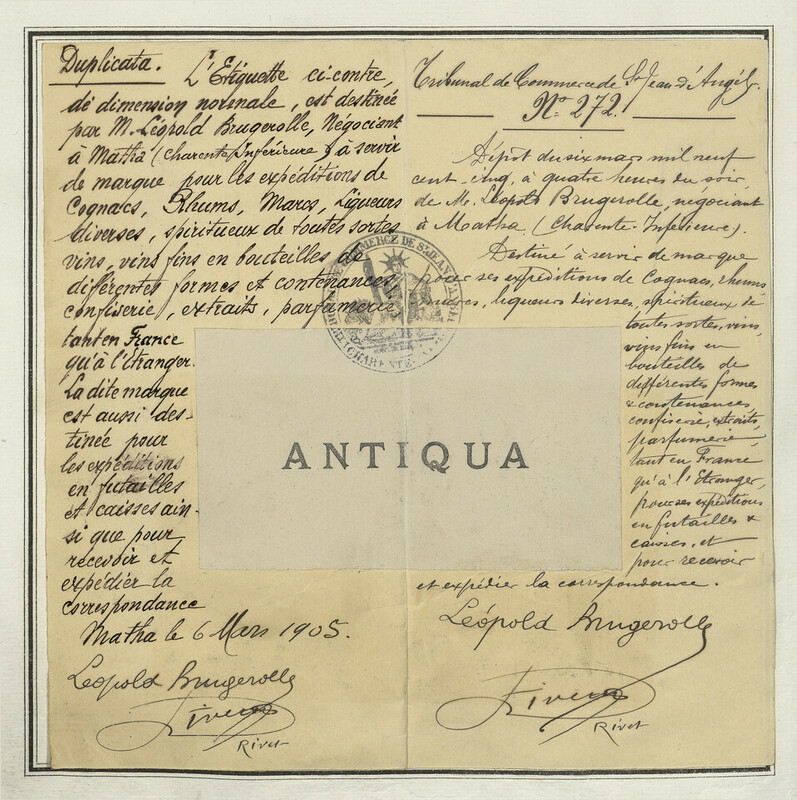 Duplicata.
L'Étiquette ci-contre,
de dimension normale, est destinée
par M. Léopold Brugerolle, Négociant
à Matha (Charente Inférieure) à servir
de marque pour les expéditions de
Cognacs, Rhums, Marcs, Liqueurs
diverses, spiritueux de toutes sortes
vins, vins fins en bouteilles de
différentes formes et contenances,
confiserie, extraits, parfumerie,
tant en France
qu'à l'Etranger.
La dite marque
est aussi des-
tinée pour
les expéditions
en futailles
et caisses ain-
si que pour
recevoir et
expédier la
correspondance
Matha le 6 Mars 1905.
Léopold Brugerolle
Rivet
Tribunal de Commerce de St Jean d'Angély.
No. 272.
Dépôt du six mars mil neuf
cent cinq, à quatre heures du soir,
de M. Léopold Brugerolle, négociant
à Matha (Charente-Inférieure).
Destiné à servir de marque
pour ses expéditions de Cognacs, rhums
marcs, liqueurs diverses, spiritueux de
toutes sortes, vins,
vins fins en
bouteilles de
différentes formes
& contenances,
confiserie, extraits,
parfumerie,
tant en France
qu'à l'Etranger,
pour ses expéditions
en futailles &
caisses, et
pour recevoir
et expédier la correspondance.
Léopold Brugerolle
Rivet
ANTIQUA